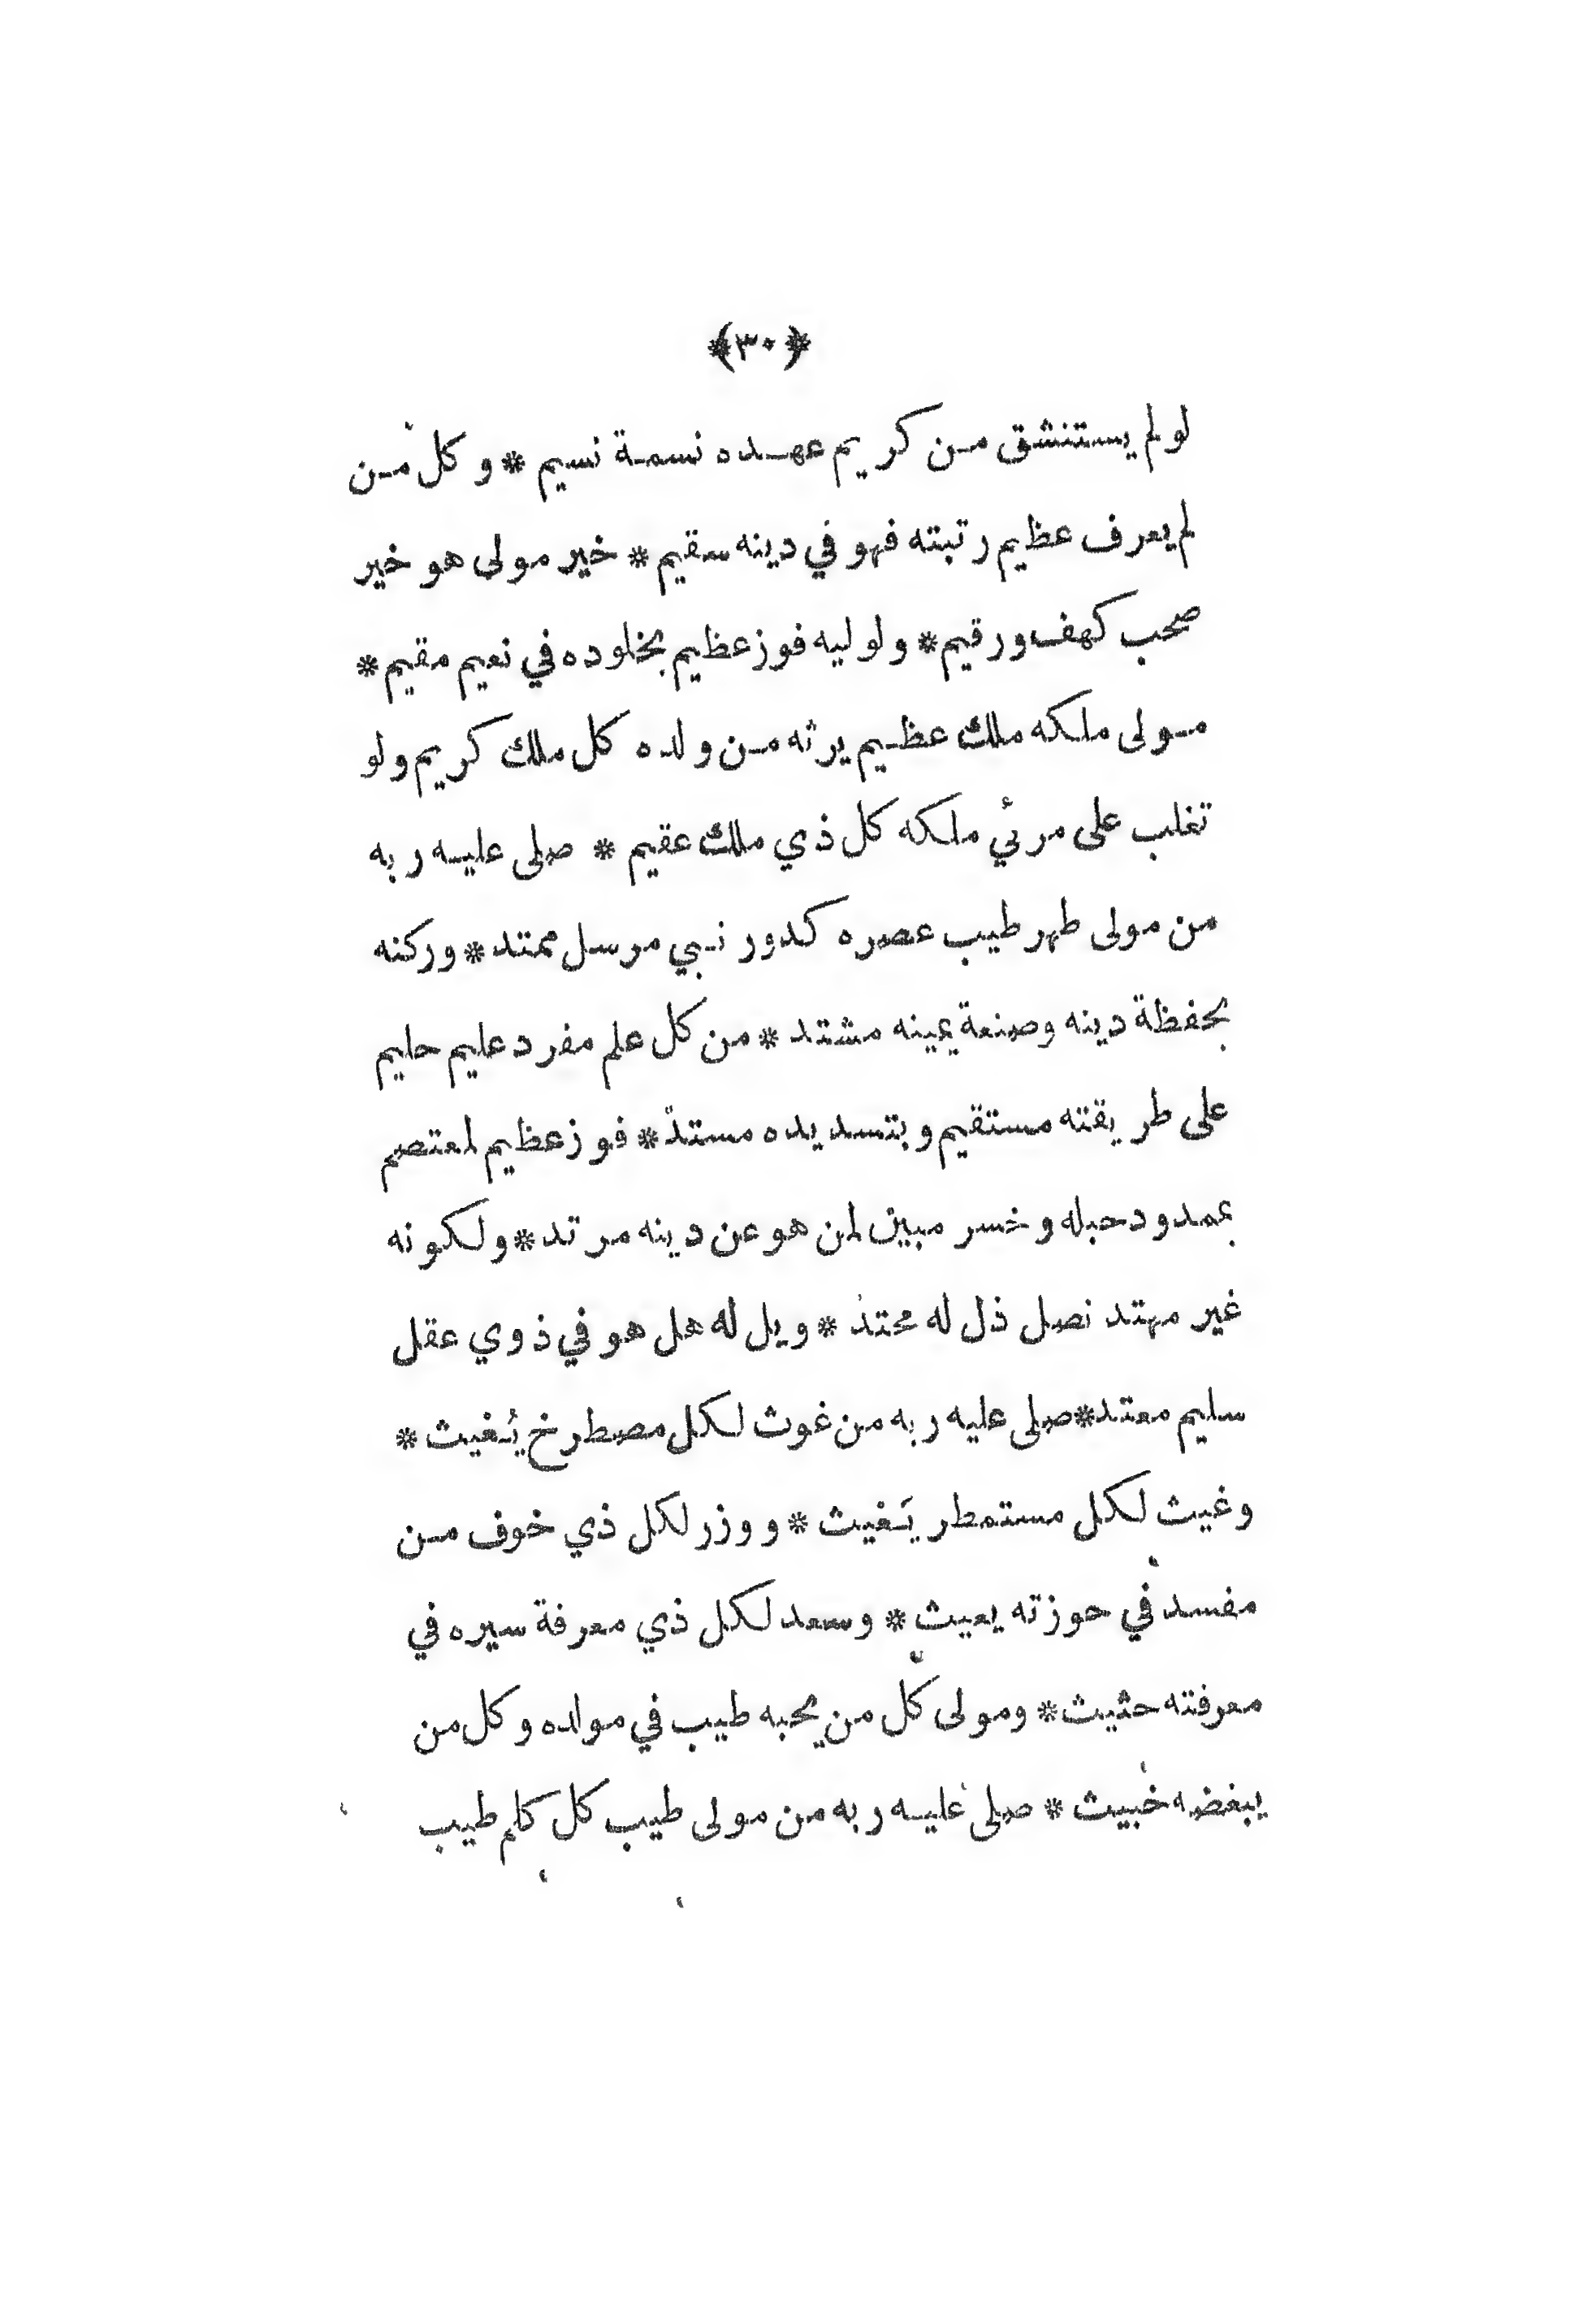 ﴿٣٠﴾
لو لم يستنشق من كريم عهده نسمة نسيم * وكل من
لم يعرف عظيم رتبته فهو في دينه سقيم * خير مولى هو خير
صحب كهف ورقيم * ولوليه فوز عظيم بخلوده في نعيم مقيم *
مولى ملكه ملك عظيم يرثه من ولده كل ملك كريم ولو
تغلب على مرئي ملكه كل ذي ملك عقيم * صلى عليه ربه
من مولى طهر طيب عصره كدور نبي مرسل ممتد * وركنه
بحفظة دينه وصنعة يمينه مشتد * من كل علم مفرد عليم حليم
على طريقته مستقيم وبتسديده مستد * فوز عظيم لمعتصم
بممدود حبله وخسر مبين لمن هو عن دينه مرتد * ولكونه
غير مهتد نصل ذل له محتد * ويل له هل هو في ذوي عقل
سليم معتد * صلى عليه ربه من غوث لكل مصطرخ يُغيث *
وغيث لكل مستمطر يَغيث * ووزر لكل ذي خوف من
مفسد في حوزته يعيث * وسعد لكل ذي معرفة سيره في
معرفته حثيث * ومولى كل من يحبه طيب في مولده وكل من
يبغضه خبيث * صلى عليه ربه من مولى طيب كل كلم طيب